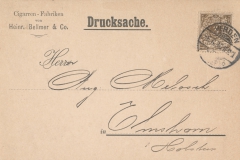 Cigarren-Fabriken
von
Heinr. Hellmer & Co.
Drucksache.
Herrn
Aug
in Elmshorn
i/ Holstein